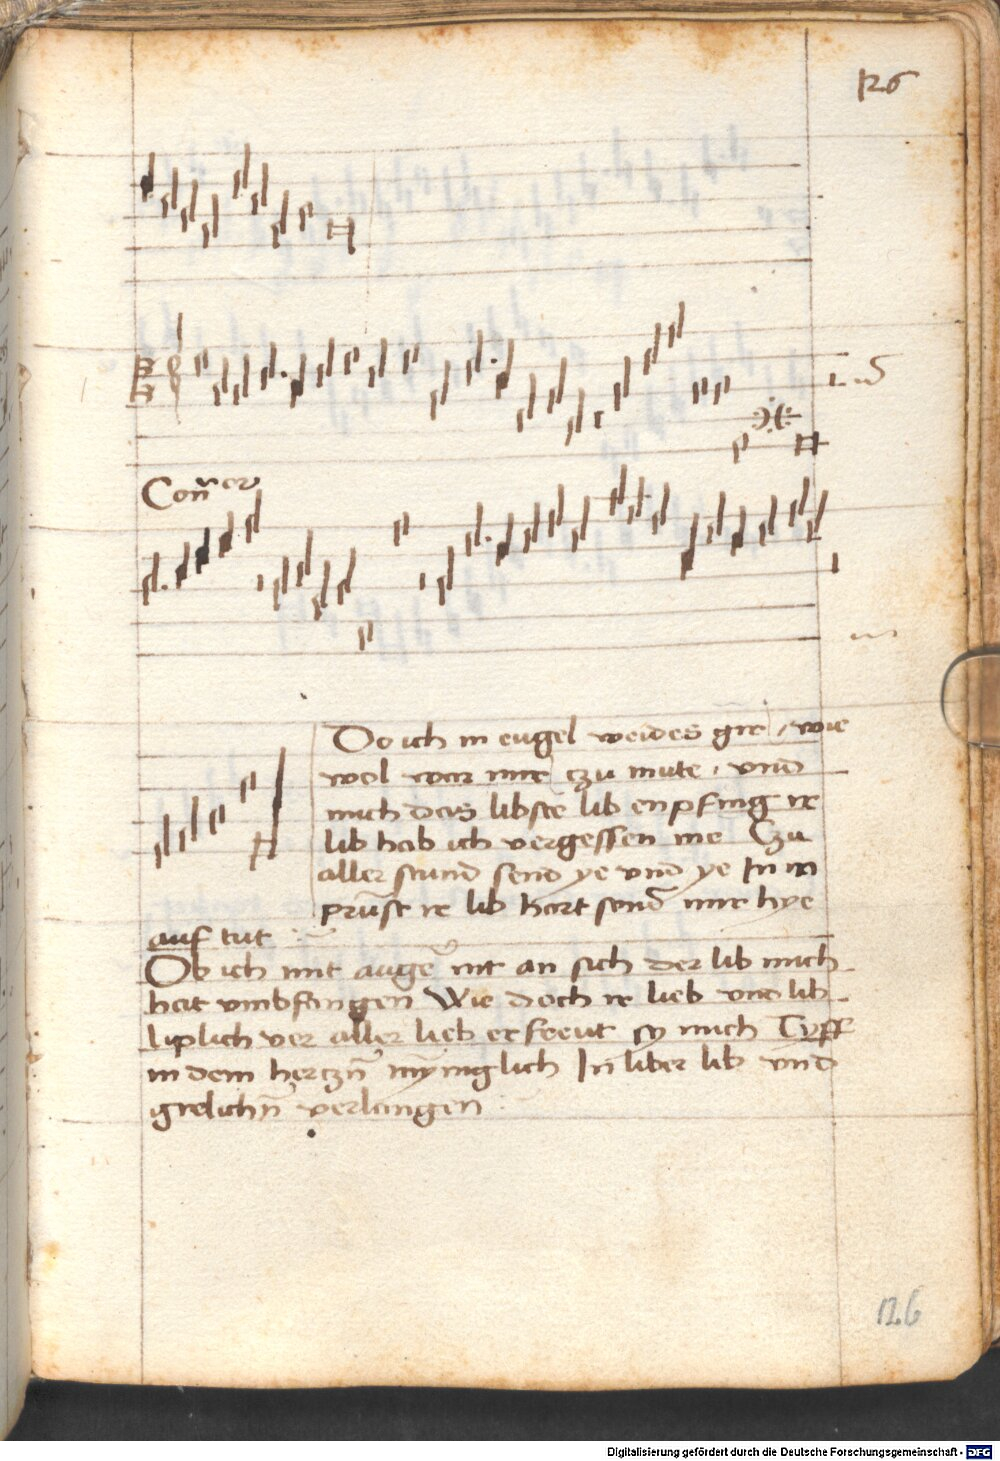 126
Do ich in eugel weides gir, wie
wol war mir czu mute, vnd
mich das libste lib enpfing ir
lib hab ich vergessen nie Czu
aller stund send ye vnd ye In
prūst ir lib hart send mir hye
auf tut
Ob ich mit auge nit an sich der lib mich
hat vmbfangen Wie doch ir lieb vnd lib
liplich ver aller lieb erfreut sy mich Tyff
in dem herczn̄ In liber lib vnd
verlangen
126
Digitalisierung gefördert durch die Deutsche Forschungsgemeinschaft - DFG